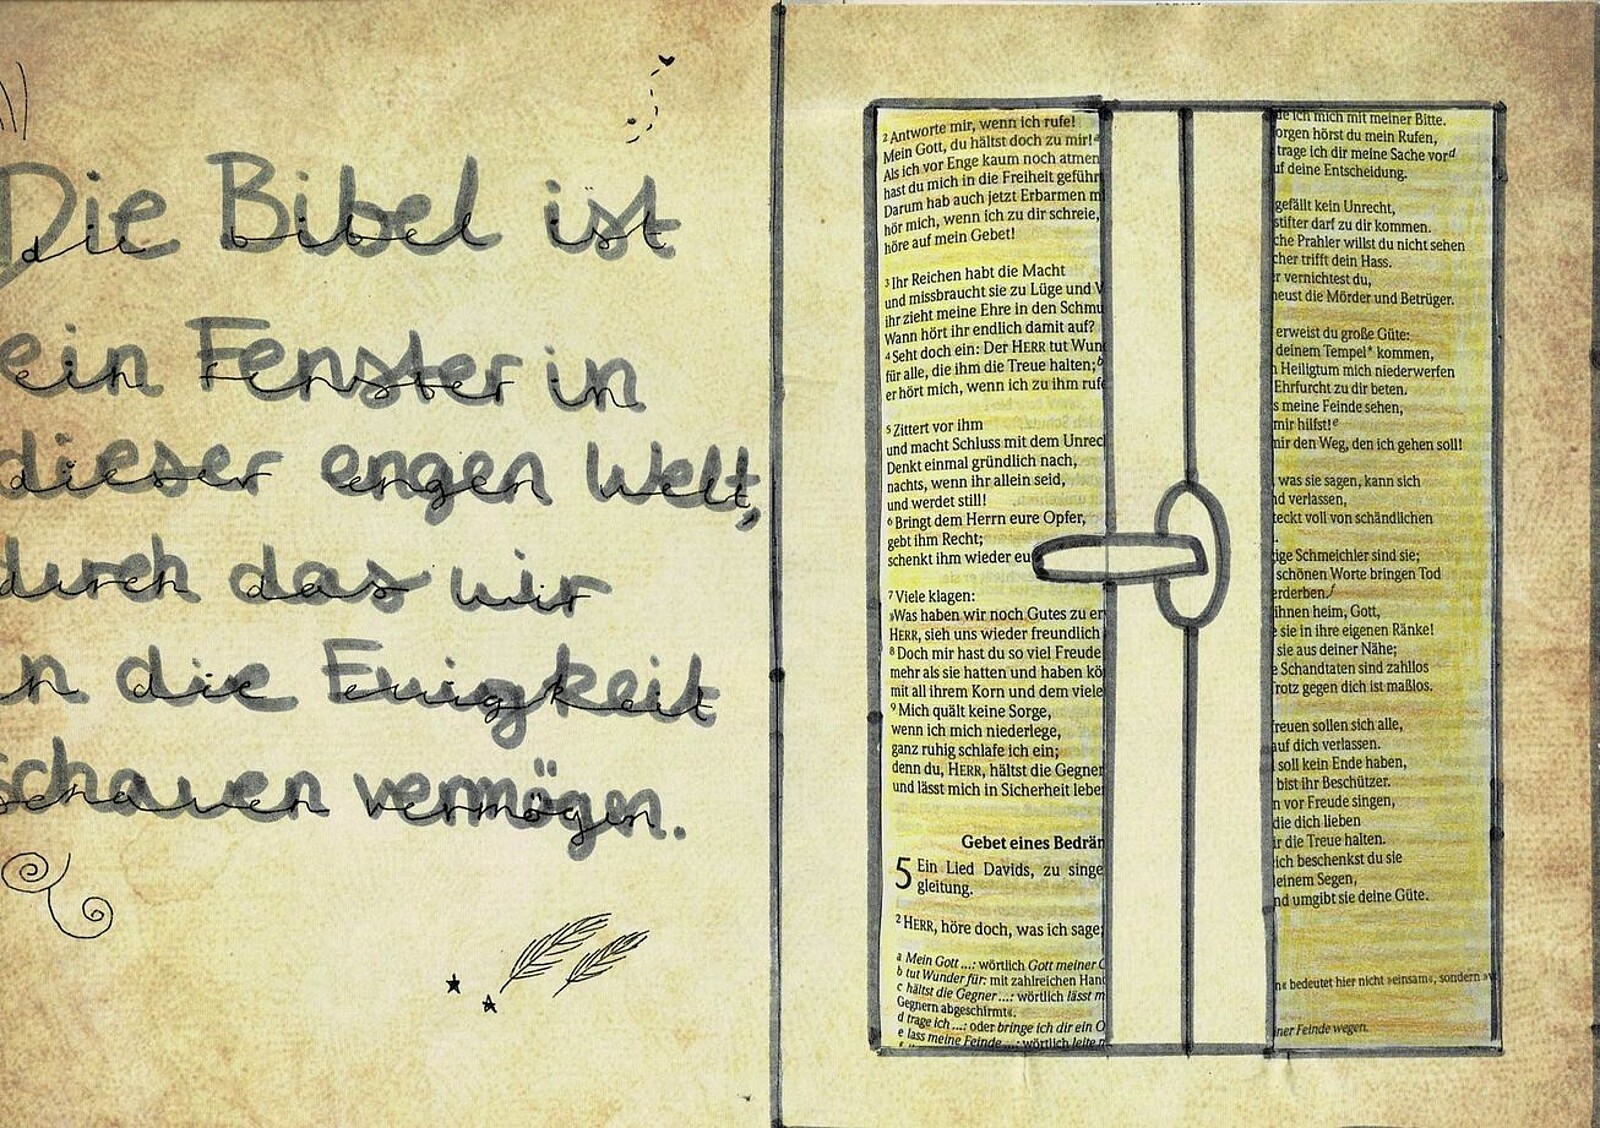 Die Bibel ist
ein Fenster in
dieser engen Welt,
durch das wir
in die Ewigkeit
schauen vermögen.
² Antworte mir, wenn ich rufe!
Mein Gott, du hältst doch zu mir!ᵃ
Als ich vor Enge kaum noch atmen
hast du mich in die Freiheit geführ
Darum hab auch jetzt Erbarmen m
hör mich, wenn ich zu dir schreie,
höre auf mein Gebet!
³ Ihr Reichen habt die Macht
und missbraucht sie zu Lüge und V
ihr zieht meine Ehre in den Schmu
Wann hört ihr endlich damit auf?
⁴ Seht doch ein: Der HERR tut Wun
für alle, die ihm die Treue halten;ᵇ
er hört mich, wenn ich zu ihm rufe
⁵ Zittert vor ihm
und macht Schluss mit dem Unrec
Denkt einmal gründlich nach,
nachts, wenn ihr allein seid,
und werdet still!
⁶ Bringt dem Herrn eure Opfer,
gebt ihm Recht;
schenkt ihm wieder eu
⁷ Viele klagen:
»Was haben wir noch Gutes zu er
HERR, sieh uns wieder freundlich
⁸ Doch mir hast du so viel Freude
mehr als sie hatten und haben kö
mit all ihrem Korn und dem viele
⁹ Mich quält keine Sorge,
wenn ich mich niederlege,
ganz ruhig schlafe ich ein;
denn du, HERR, hältst die Gegner
und lässt mich in Sicherheit lebe
Gebet eines Bedrän
5 Ein Lied Davids, zu singe
gleitung.
² HERR, höre doch, was ich sage,
a Mein Gott ...: wörtlich Gott meiner G
b tut Wunder für: mit zahlreichen Hand
c hältst die Gegner ...: wörtlich lässt m
Gegnern abgeschirmt«.
d trage ich ...: oder bringe ich dir ein O
e lass meine Feinde ...: wörtlich leite m
de ich mich mit meiner Bitte.
orgen hörst du mein Rufen,
trage ich dir meine Sache vorᵈ
uf deine Entscheidung.
gefällt kein Unrecht,
stifter darf zu dir kommen.
che Prahler willst du nicht sehen
cher trifft dein Hass.
r vernichtest du,
heust die Mörder und Betrüger.
erweist du große Güte:
deinem Tempel* kommen,
n Heiligtum mich niederwerfen
Ehrfurcht zu dir beten.
s meine Feinde sehen,
mir hilfst!ᵉ
mir den Weg, den ich gehen soll!
was sie sagen, kann sich
nd verlassen,
teckt voll von schändlichen
.
ige Schmeichler sind sie;
schönen Worte bringen Tod
erderben.ᶠ
ihnen heim, Gott,
e sie in ihre eigenen Ränke!
sie aus deiner Nähe;
e Schandtaten sind zahllos
rotz gegen dich ist maßlos.
freuen sollen sich alle,
auf dich verlassen.
soll kein Ende haben,
bist ihr Beschützer.
n vor Freude singen,
die dich lieben
ir die Treue halten.
ich beschenkst du sie
einem Segen,
nd umgibt sie deine Güte.
n« bedeutet hier nicht »einsam«, sondern »v
ner Feinde wegen.